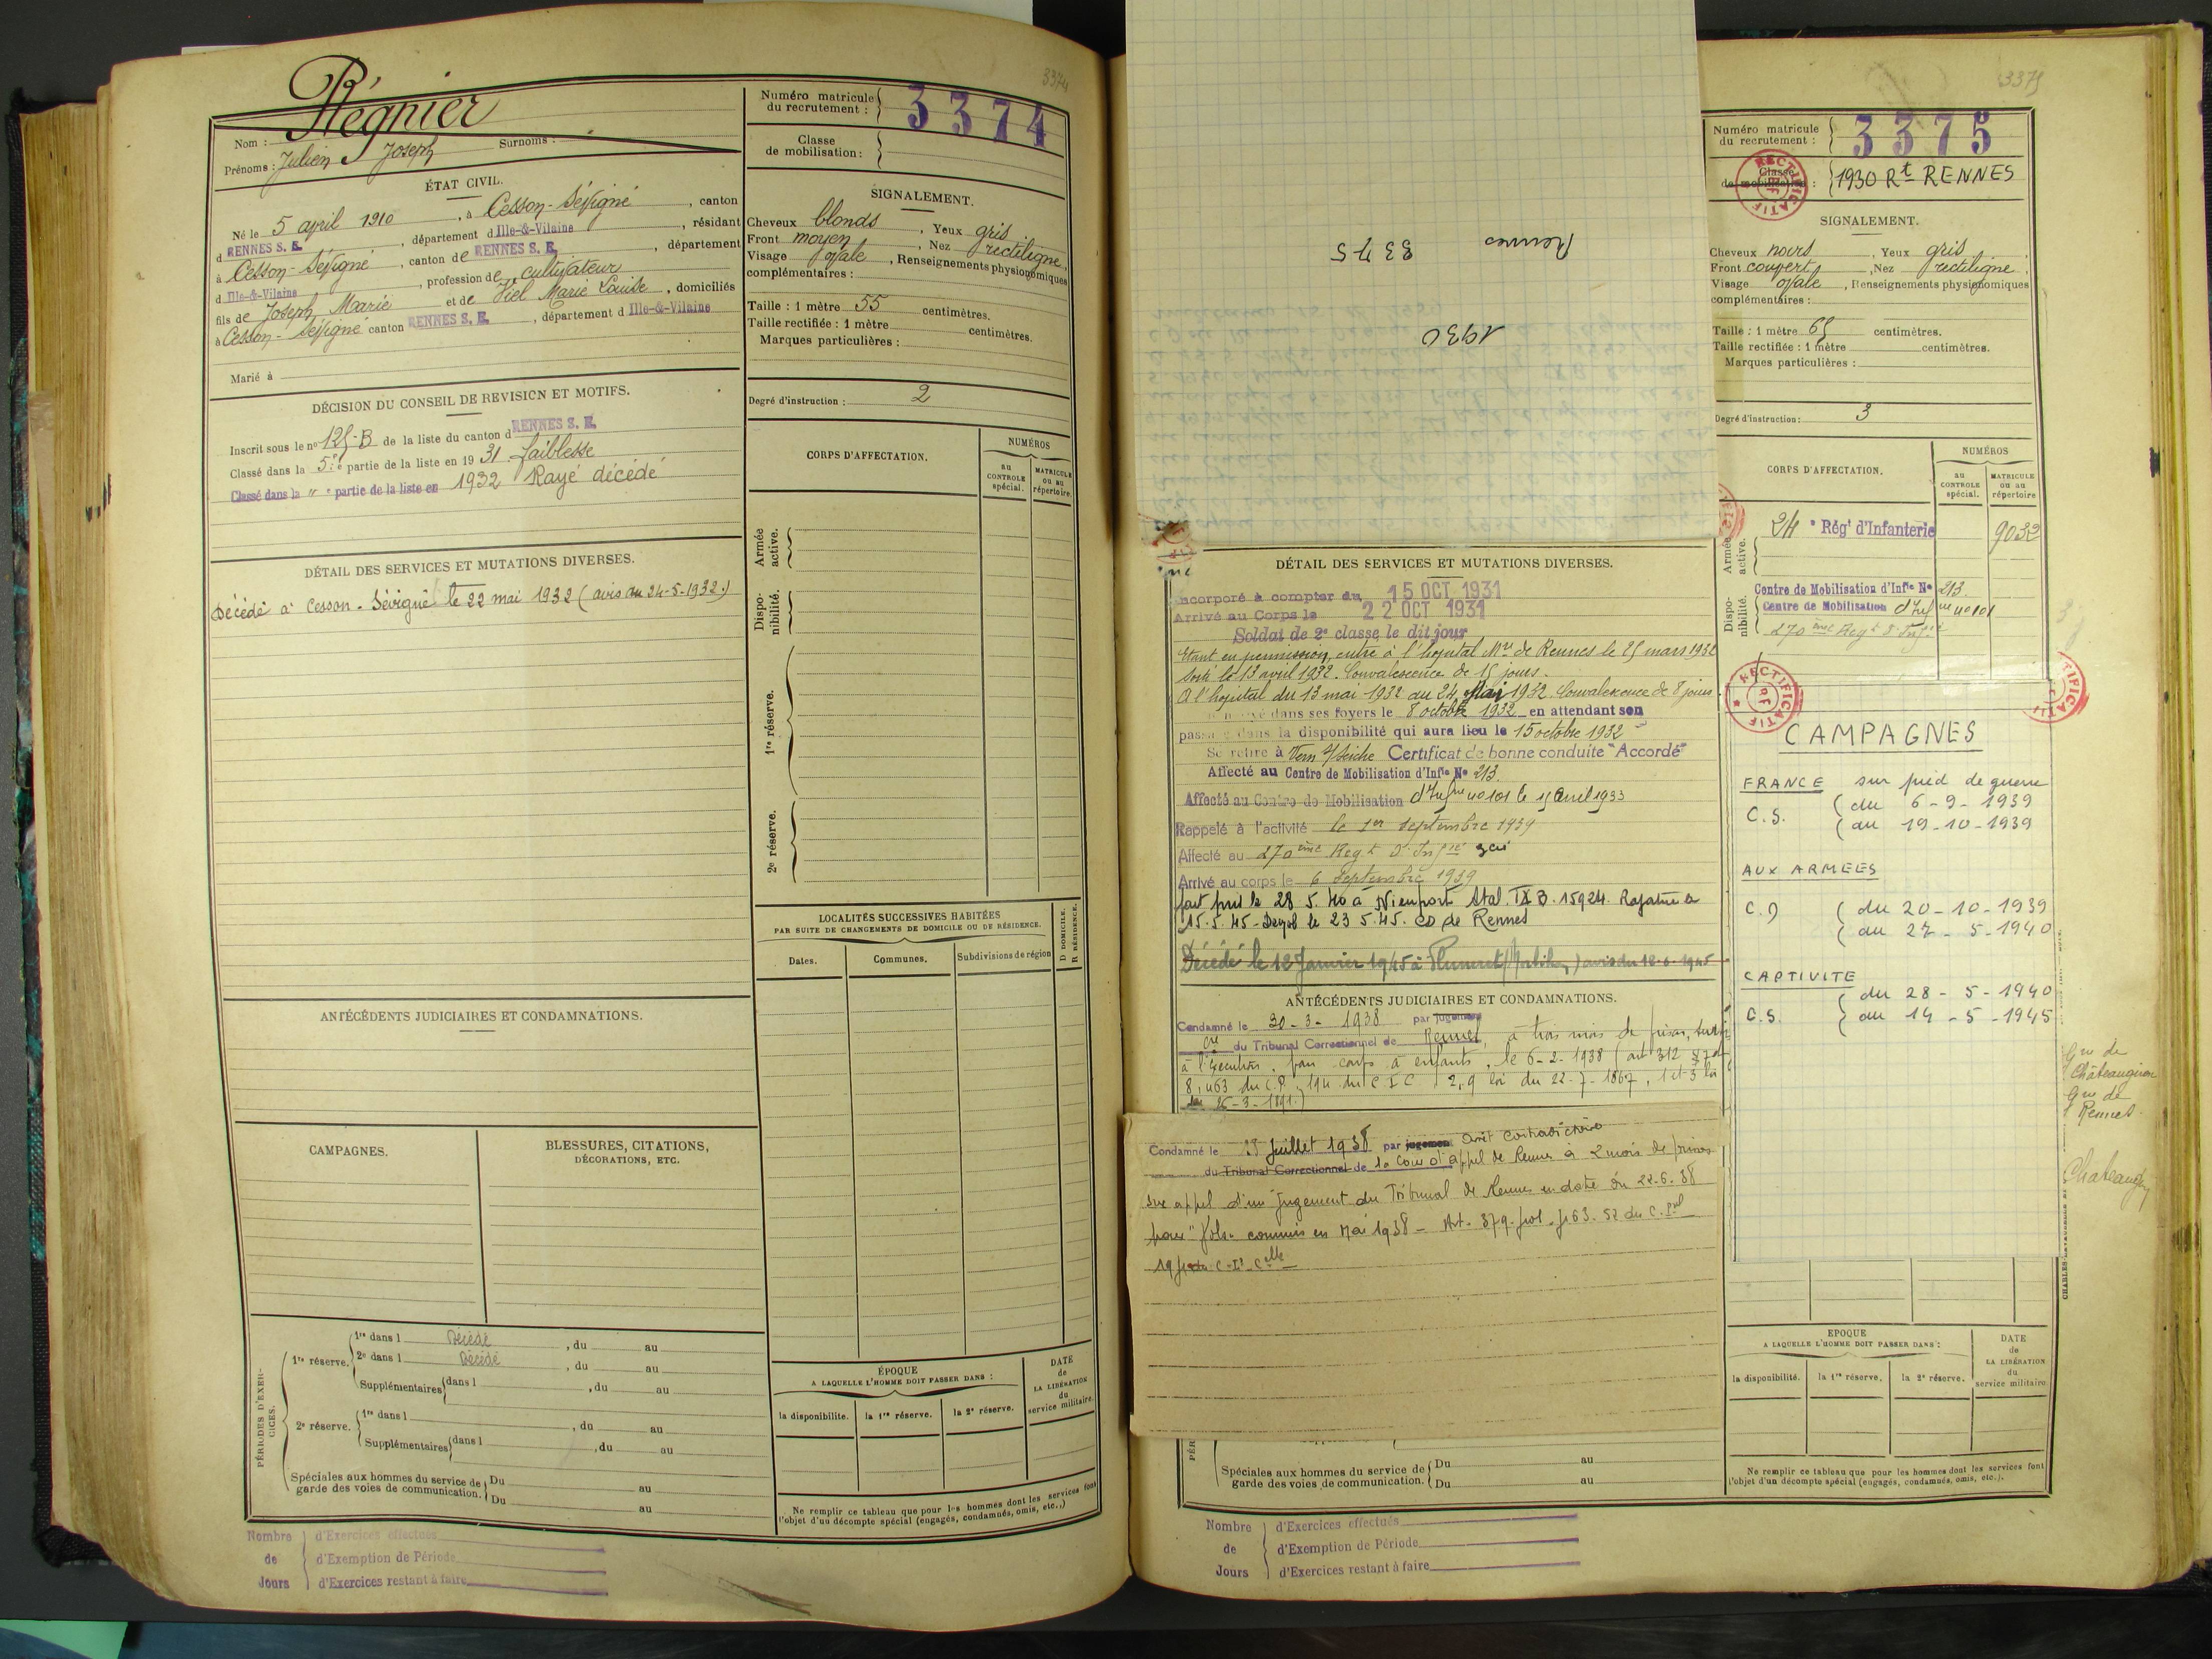 3374
Régnier
Nom :
Prénoms : Julien Joseph Surnoms :
ÉTAT CIVIL.
Né le 5 avril 1910, à Cesson-Sévigné, canton
d RENNES S. E., département d Ille-&-Vilaine, résidant
à Cesson-Sévigné, canton de RENNES S. E., département
d Ille-&-Vilaine, profession de cultivateur
fils de Joseph Marie et de Viel Marie Louise, domiciliés
à Cesson-Sévigné canton RENNES S. E., département d Ille-&-Vilaine
Marié à
DÉCISION DU CONSEIL DE REVISION ET MOTIFS.
Inscrit sous le n° 125-B de la liste du canton d RENNES S. E.
Classé dans la 5e partie de la liste en 1931. faiblesse
Classé dans la " e partie de la liste en 1932 Rayé décédé
DÉTAIL DES SERVICES ET MUTATIONS DIVERSES.
Décédé à Cesson-Sévigné le 22 mai 1932 (avis du 24-5-1932.)
ANTÉCÉDENTS JUDICIAIRES ET CONDAMNATIONS.
CAMPAGNES.
BLESSURES, CITATIONS,
DÉCORATIONS, ETC.
PÉRIODES D'EXERCICES.
1re réserve.
1re dans l Décédé, du au
2e dans l Décédé, du au
Supplémentaires dans l, du au
2e réserve.
1re dans l, du au
Supplémentaires dans l, du au
Spéciales aux hommes du service de garde des voies de communication.
Du au
Du au
Nombre de Jours
d'Exercices effectués
d'Exemption de Période
d'Exercices restant à faire
Numéro matricule du recrutement : 3374
Classe de mobilisation :
SIGNALEMENT.
Cheveux blonds, Yeux gris
Front moyen, Nez rectiligne
Visage ovale, Renseignements physionomiques
complémentaires :
Taille : 1 mètre 55 centimètres.
Taille rectifiée : 1 mètre centimètres.
Marques particulières :
Degré d'instruction : 2
CORPS D'AFFECTATION.
NUMÉROS
au CONTROLE spécial.
MATRICULE ou au répertoire.
Armée active.
Disponibilité.
1re réserve.
2e réserve.
LOCALITÉS SUCCESSIVES HABITÉES
PAR SUITE DE CHANGEMENTS DE DOMICILE OU DE RÉSIDENCE.
Dates. Communes. Subdivisions de région
D DOMICILE.
R RÉSIDENCE.
ÉPOQUE
A LAQUELLE L'HOMME DOIT PASSER DANS :
la disponibilité. la 1re réserve. la 2e réserve.
DATE de LA LIBÉRATION du service militaire.
Ne remplir ce tableau que pour les hommes dont les services font
l'objet d'un décompte spécial (engagés, condamnés, omis, etc.,)
Rennes 3375
1930
DÉTAIL DES SERVICES ET MUTATIONS DIVERSES.
Incorporé à compter du 15 OCT 1931
Arrivé au Corps le 22 OCT 1931
Soldat de 2e classe le dit jour
Etant en permission, entre à l'hopital Mre de Rennes le 25 mars 1932
Sorti le 13 avril 1932. Convalescence de 15 jours.
A l'hopital du 13 mai 1932 au 24 Mai 1932. Convalescence de 8 jours
dans ses foyers le 8 octobre 1932 en attendant son
dans la disponibilité qui aura lieu le 15 octobre 1932
Se retire à Vern s/Seiche Certificat de bonne conduite "Accordé"
Affecté au Centre de Mobilisation d'Infie No 213.
Affecté au Centre de Mobilisation d'Infrie no 101 le 15 Avril 1933
Rappelé à l'activité le 1er Septembre 1939
Affecté au 270ème Regt d'Infie
Arrivé au corps le 6 Septembre 1939
fait pris le 28.5.40 à Nieuport Stal. IX B. 15924. Rapatrié le
15.5.45 - Demob le 23.5.45. CD de Rennes
Décédé le 12 Janvier 1945 à Plumeret (Morbihan) avis du 18-6-1945
ANTÉCÉDENTS JUDICIAIRES ET CONDAMNATIONS.
Condamné le 30-3-1938 par jugement
Cre du Tribunal Correctionnel de Rennes, à trois mois de prison, sursis
à l'exécution, pour coups à enfants, le 6-2-1938 (art 312 §7 et
8, 463 du C.P., 194 du C I C 2, 9 loi du 22-7-1867, 1 et 3 loi
du 26-3-1891.)
Condamné le 25 Juillet 1938 par jugement Arrêt contradictoire
du Tribunal Correctionnel de la Cour d'appel de Rennes à 2 mois de prison
sur appel d'un Jugement du Tribunal de Rennes en date du 22.6.38
pour "Vols" commis en Mai 1938 - Art. 379. 463. 52 du C. Pal
C. Ion Celle
Spéciales aux hommes du service de garde des voies de communication.
Du au
Du au
Nombre de Jours
d'Exercices effectués
d'Exemption de Période
d'Exercices restant à faire
3375
Numéro matricule du recrutement : 3375
Classe de mobilisation : 1930 Rt RENNES
RECTIFICATIF
SIGNALEMENT.
Cheveux noirs, Yeux gris
Front couvert, Nez rectiligne
Visage ovale, Renseignements physionomiques
complémentaires :
Taille : 1 mètre 65 centimètres.
Taille rectifiée : 1 mètre centimètres.
Marques particulières :
Degré d'instruction : 3
CORPS D'AFFECTATION.
NUMÉROS
au CONTROLE spécial.
MATRICULE ou au répertoire
Armée active.
24e Régt d'Infanterie 9032
Disponibilité.
Centre de Mobilisation d'Infie No 213
Centre de Mobilisation d'Infrie no 101
270ème Regt d'Infie
RECTIFICATIF
CAMPAGNES
FRANCE sur pied de guerre
C.S. (du 6-9-1939
(au 19-10-1939
AUX ARMEES
C.D (du 20-10-1939
(au 27-5-1940
CAPTIVITE
C.S. (du 28-5-1940
(au 14-5-1945
Gie de
Châteaugiron
Gie de
Rennes.
Chateaugiron
ÉPOQUE
A LAQUELLE L'HOMME DOIT PASSER DANS :
la disponibilité. la 1re réserve. la 2e réserve.
DATE de LA LIBÉRATION du service militaire.
Ne remplir ce tableau que pour les hommes dont les services font
l'objet d'un décompte spécial (engagés, condamnés, omis, etc.).